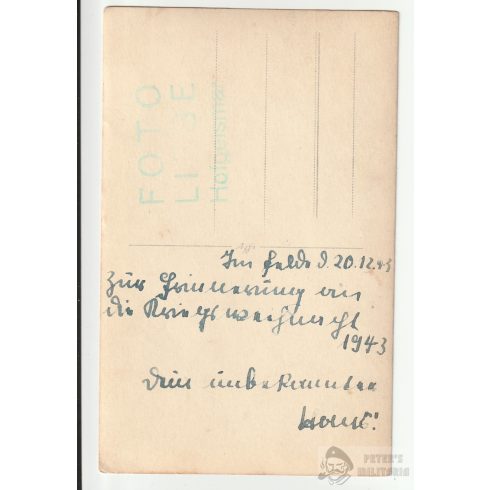 FOTO
LI SE
Hofgeismar
Im Felde d. 20.12.43
Zur Erinnerung an
die Kriegsweihnacht
1943
Dein unbekannter
Hans!
PETER'S
MILITARIA